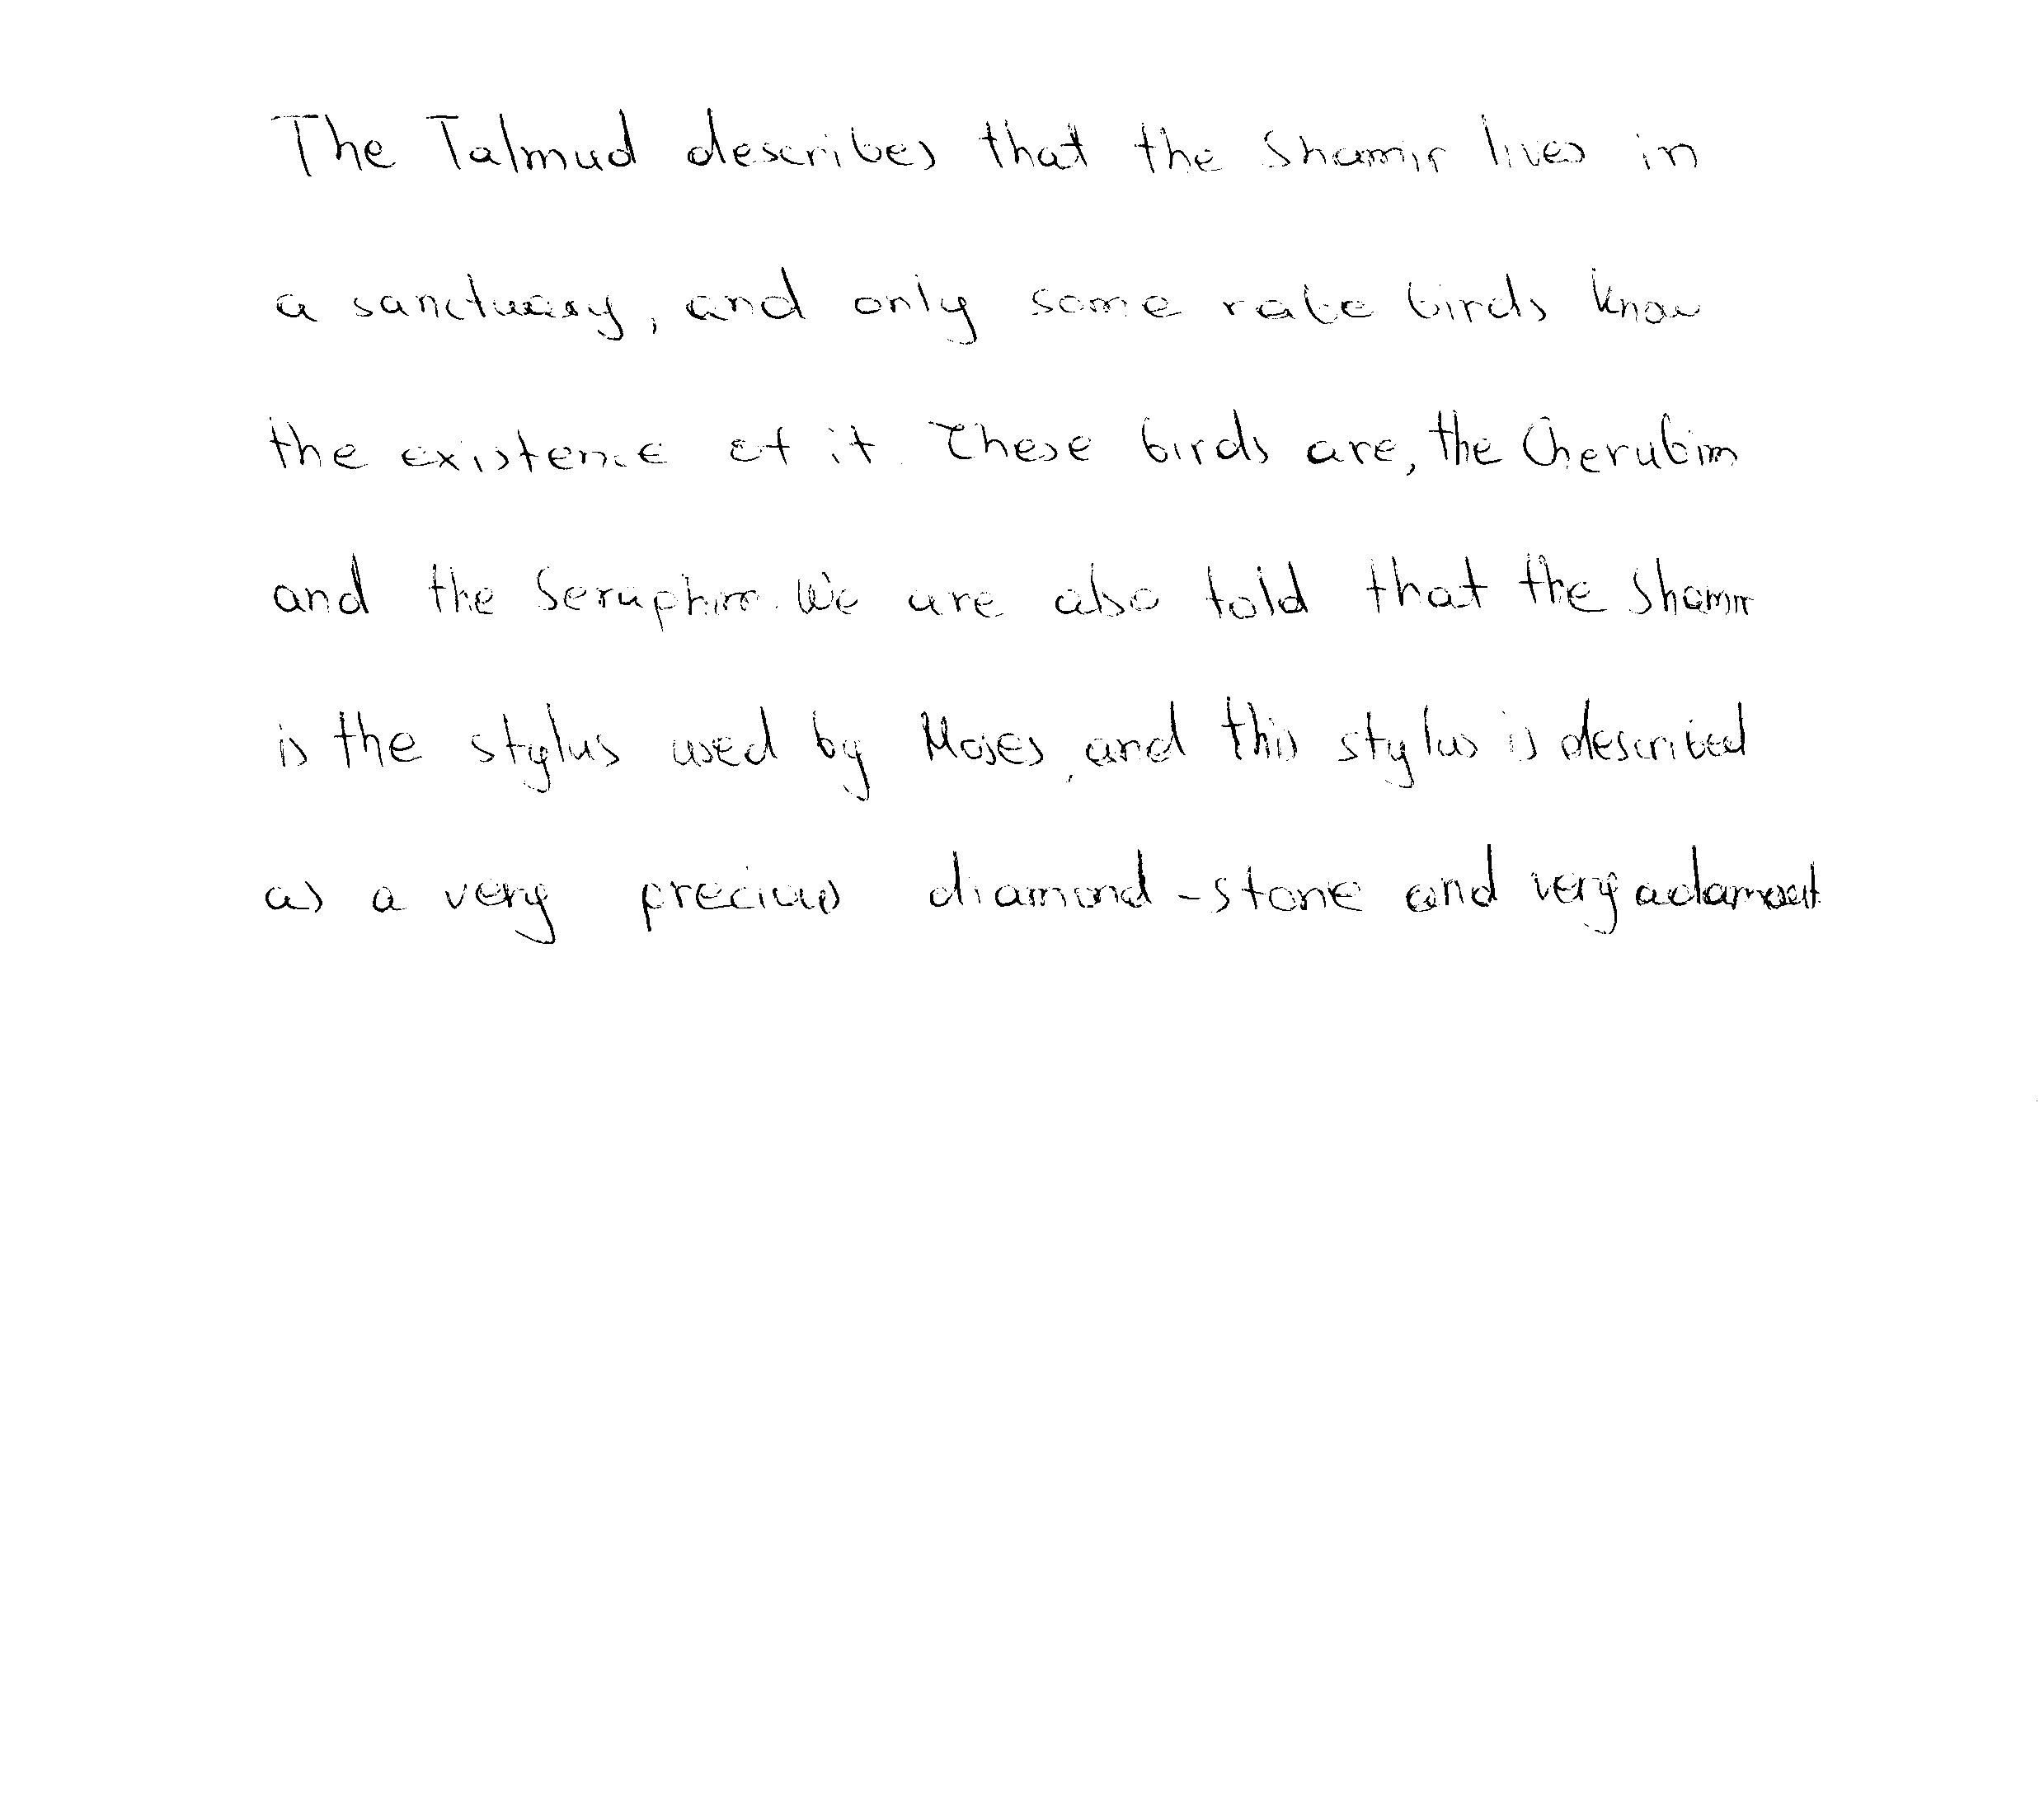 The Talmud describes that the Shamir lives in
a sanctuary, and only some rare birds know
the existence of it. These birds are, the Cherubim
and the Seraphim. We are also told that the Shamir
is the stylus used by Moses, and this stylus is described
as a very precious diamond-stone and very adamant